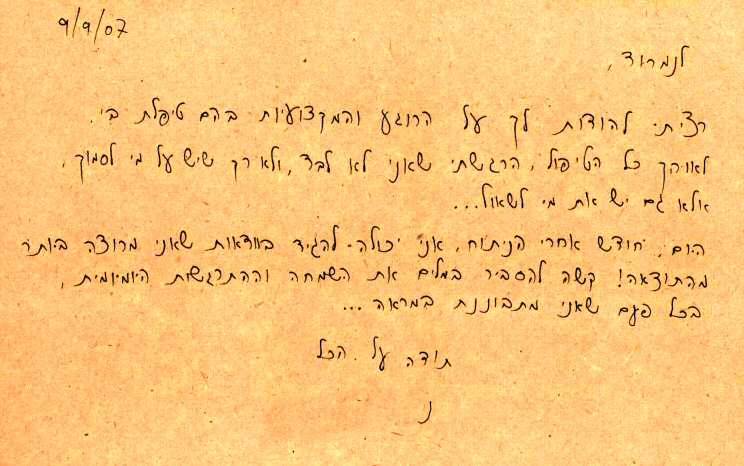 9/9/07
לנמרוד,
רציתי להודות לך על הרוגע והמקצועיות בהם טיפלת בי.
לאורך כל הטיפול, הרגשתי שאני לא לבד, ולא רק שיש על מי לסמוך,
אלא גם יש את מי לשאול...
היום, חודש אחרי הניתוח, אני יכולה להגיד בוודאות שאני מרוצה ביותר
מהתוצאה! קשה להסביר במלים את השמחה וההתרגשות היומיומית,
בכל פעם שאני מתבוננת במראה...
תודה על הכל
נ